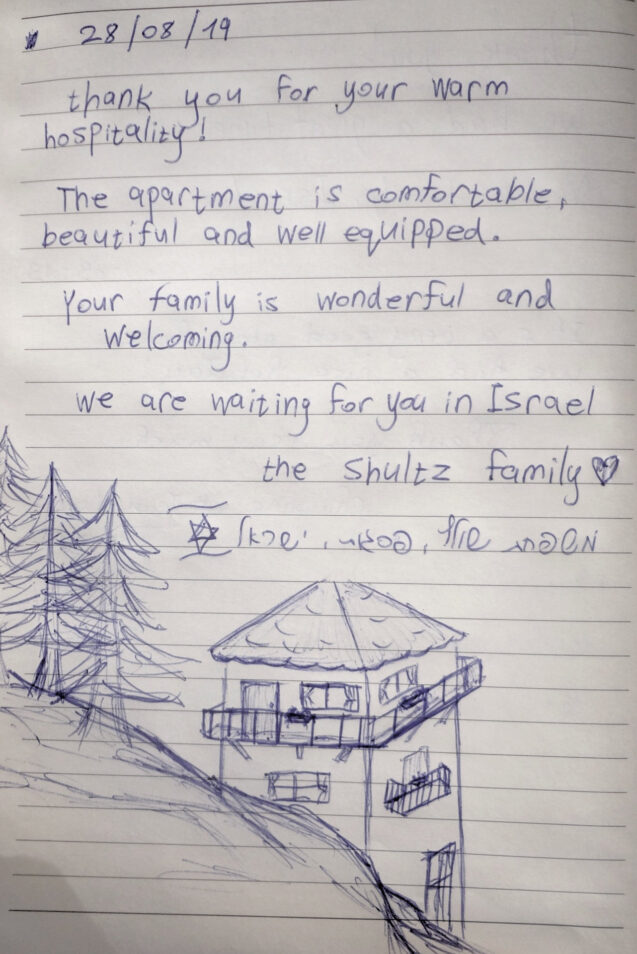 28/08/19
thank you for your warm
hospitality!
The apartment is comfortable,
beautiful and well equipped.
Your family is wonderful and
welcoming.
we are waiting for you in Israel
the shultz family♡
משפחת שולץ, ישראל